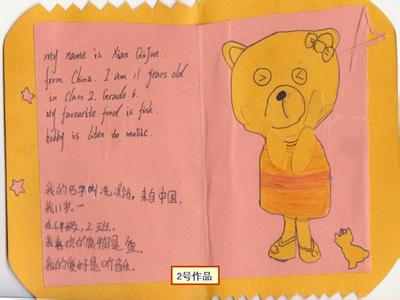 my name is Xian QiJun.
from China. I am 11 years old.
in Class 2. Grade 6.
My favourite food is fish.
hobby is listen to music.
我的名字叫冼淇，来自中国。
我11岁。
在6年级，2班。
我喜欢的食物是鱼。
我的爱好是听音乐。
2号作品